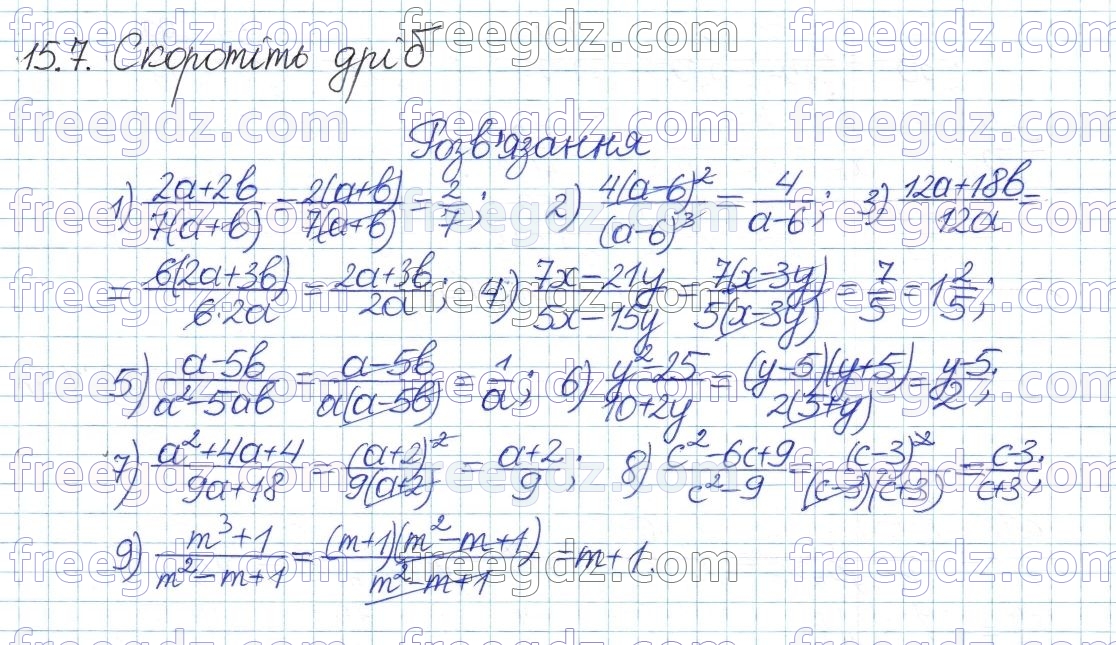 15.7. Скоротіть дріб
Розв'язання
1) (2a+2b)/(7(a+b)) = 2(a+b)/7(a+b) = 2/7; 2) 4(a-6)²/(a-6)³ = 4/(a-6); 3) (12a+18b)/12a =
= 6(2a+3b)/6·2a = (2a+3b)/2a; 4) (7x-21y)/(5x-15y) = 7(x-3y)/5(x-3y) = 7/5 = 1 2/5;
5) (a-5b)/(a²-5ab) = (a-5b)/a(a-5b) = 1/a; 6) (y²-25)/(10+2y) = (y-5)(y+5)/2(5+y) = (y-5)/2;
7) (a²+4a+4)/(9a+18) = (a+2)²/9(a+2) = (a+2)/9; 8) (c²-6c+9)/(c²-9) = (c-3)²/(c-3)(c+3) = (c-3)/(c+3);
9) (m³+1)/(m²-m+1) = (m+1)(m²-m+1)/(m²-m+1) = m+1.
freegdz.com